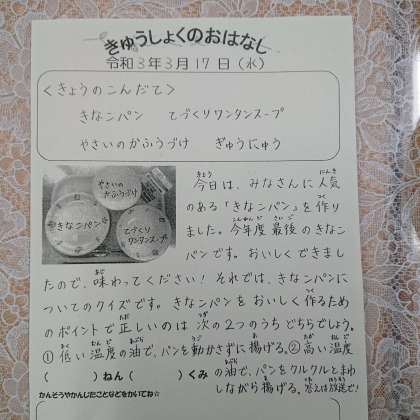 きゅうしょくのおはなし
令和3年3月17日(水)
<きょうのこんだて>
きなこパン てづくりワンタンスープ
やさいのかふうづけ ぎゅうにゅう
やさいの
かふうづけ
きなこパン
てづくり
ワンタンスープ
今日は、みなさんに人気
のある「きなこパン」を作り
ました。今年度最後のきなこ
パンです。おいしくできまし
たので、味わってください!それでは、きなこパンに
ついてのクイズです。きなこパンをおいしく作るため
のポイントで正しいのは次の2つのうちどちらでしょう。
①低い温度の油で、パンを動かさずに揚げる。②高い温度
の油で、パンをクルクルとまわ
しながら揚げる。答えは放送で!
( )ねん ( )くみ
かんそうやかんじたことなどをかいてね☆